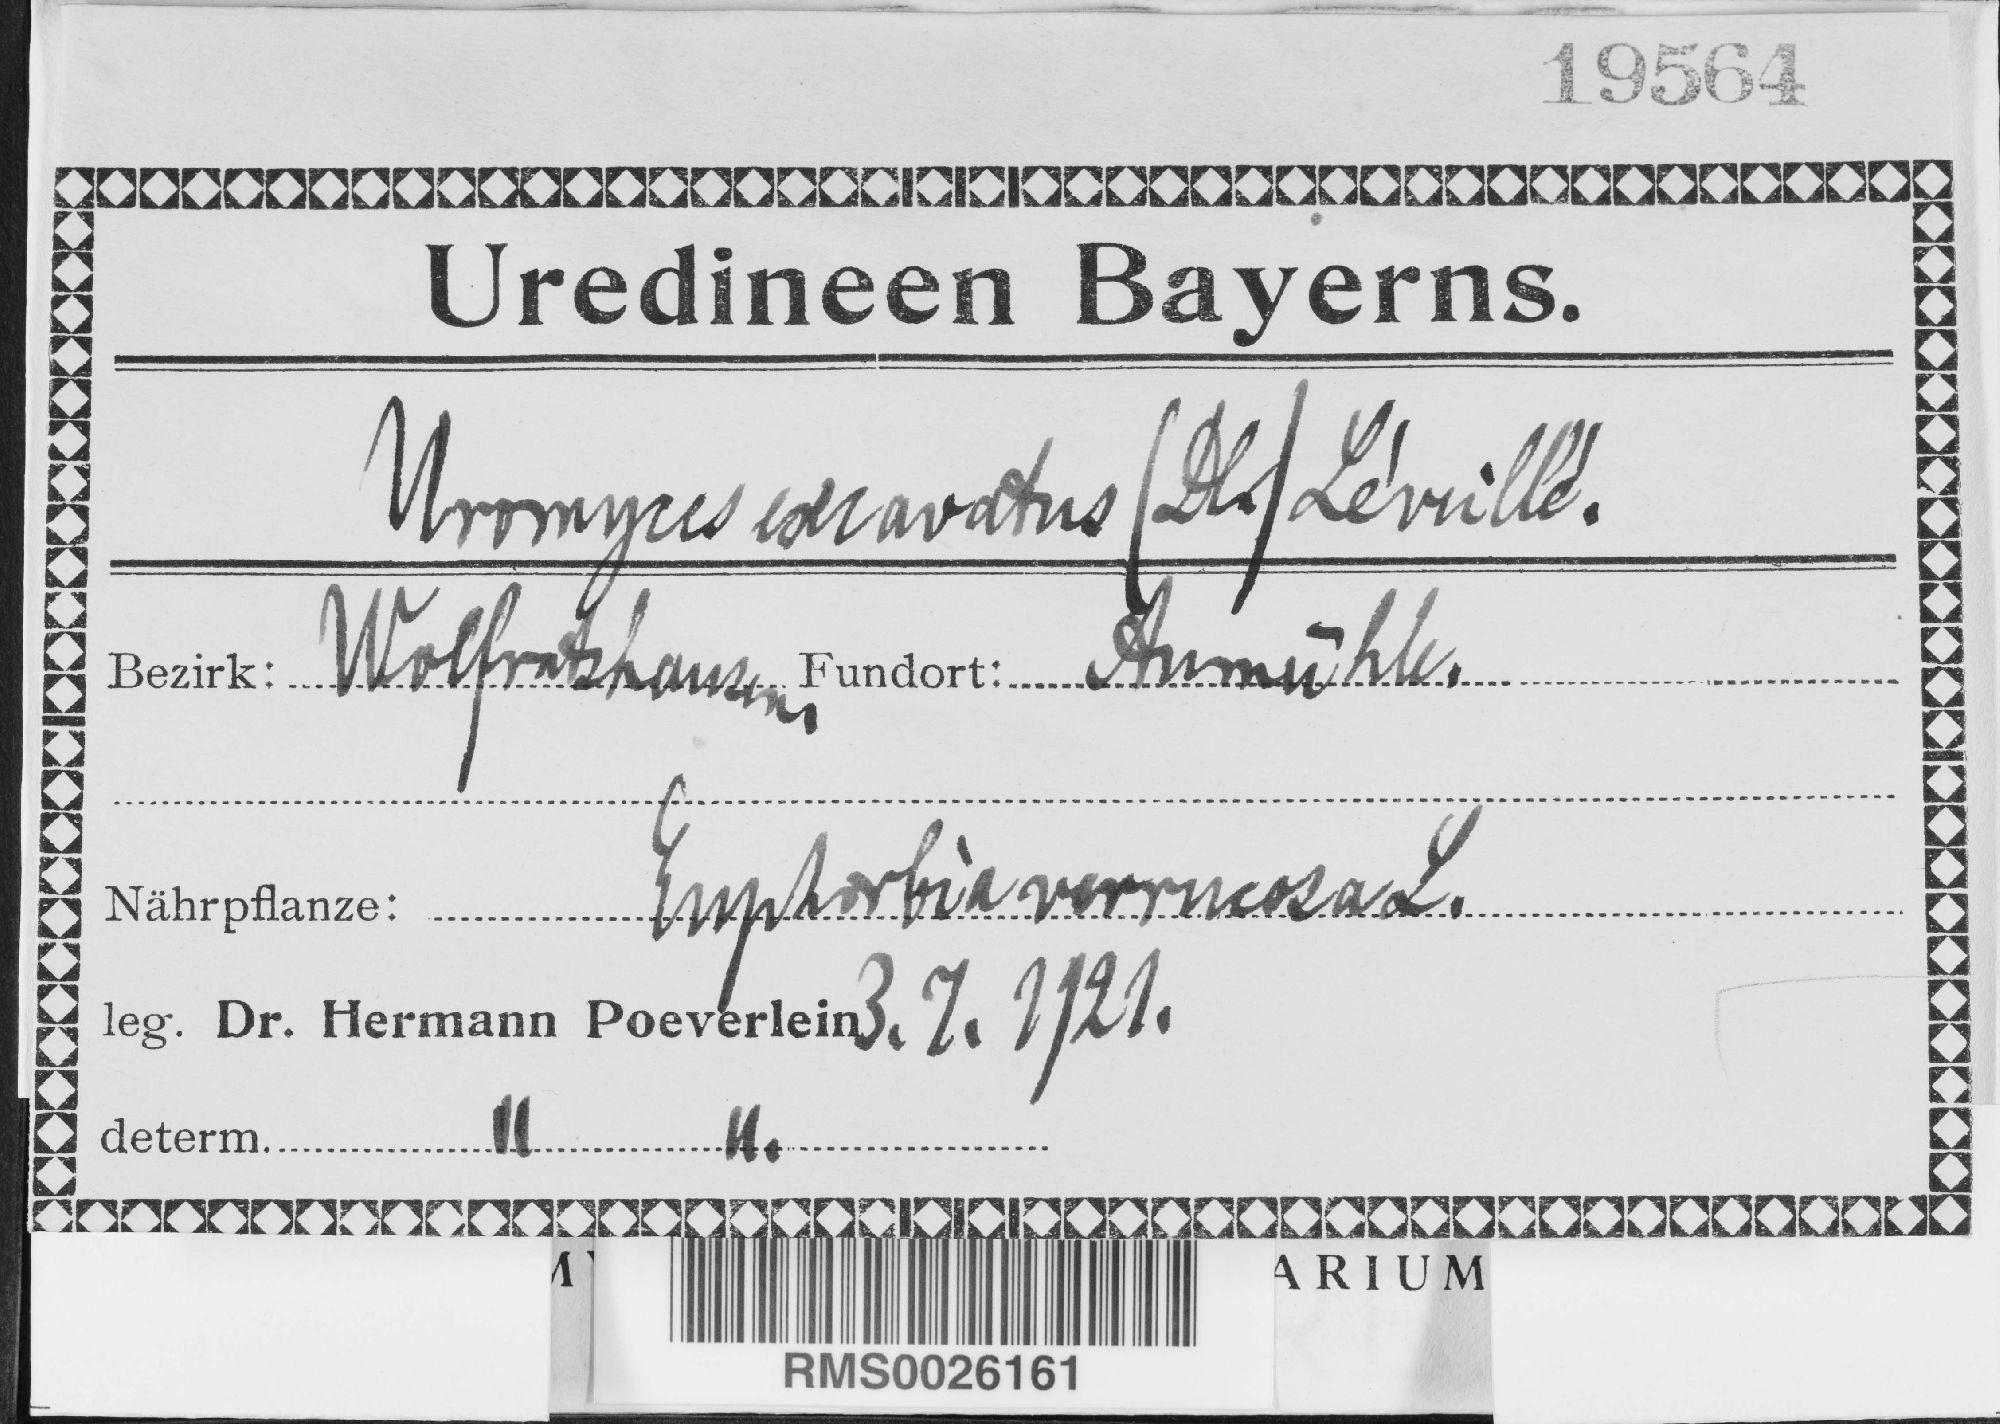 19564
Uredineen Bayerns.
Uromyces excavatus (DC.) Léveillé.
Bezirk: Wolfratshausen, Fundort: Aumühle.
Nährpflanze: Euphorbia verrucosa L.
leg. Dr. Hermann Poeverlein 3. 7. 1921.
determ. " ".
ARIUM
RMS0026161